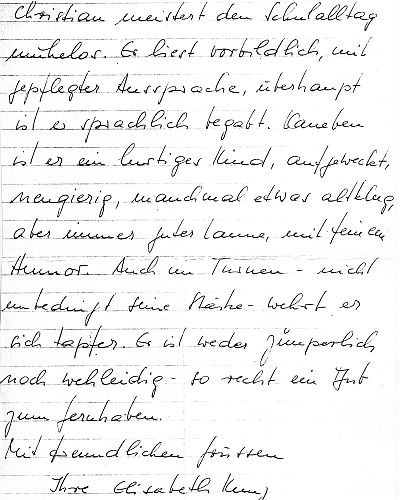 Christian meistert den Schulalltag
mühelos. Er liest vorbildlich, mit
gepflegter Aussprache, überhaupt
ist er sprachlich begabt. Daneben
ist er ein lustiges Kind, aufgeweckt,
neugierig, manchmal etwas altklug,
aber immer guter Laune, mit feinem
Humor. Auch im Turnen - nicht
unbedingt seine Stärke - wehrt er
sich tapfer. Er ist weder zimperlich
noch wehleidig - so recht ein Bub
zum Gernhaben.
Mit freundlichen Grüssen
Ihre Elisabeth